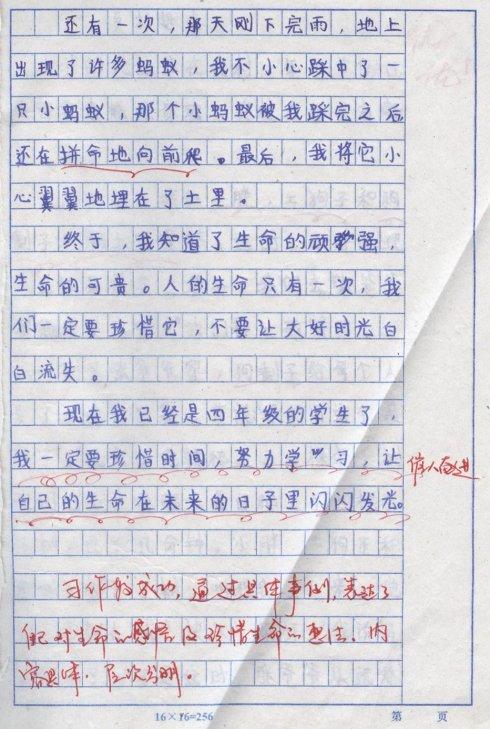 还有一次，那天刚下完雨，地上
出现了许多蚂蚁，我不小心踩中了一
只小蚂蚁，那个小蚂蚁被我踩完之后
还在拼命地向前爬。最后，我将它小
心翼翼地埋在了土里。
终于，我知道了生命的顽强，
生命的可贵。人的生命只有一次，我
们一定要珍惜它，不要让大好时光白
白流失。
现在我已经是四年级的学生了，
我一定要珍惜时间，努力学习，让
催人奋进
自己的生命在未来的日子里闪闪发光。
习作较成功，通过具体事例，表达了
自己对生命的感悟及珍惜生命的想法。内
容具体，层次分明。
16×16=256
第 页